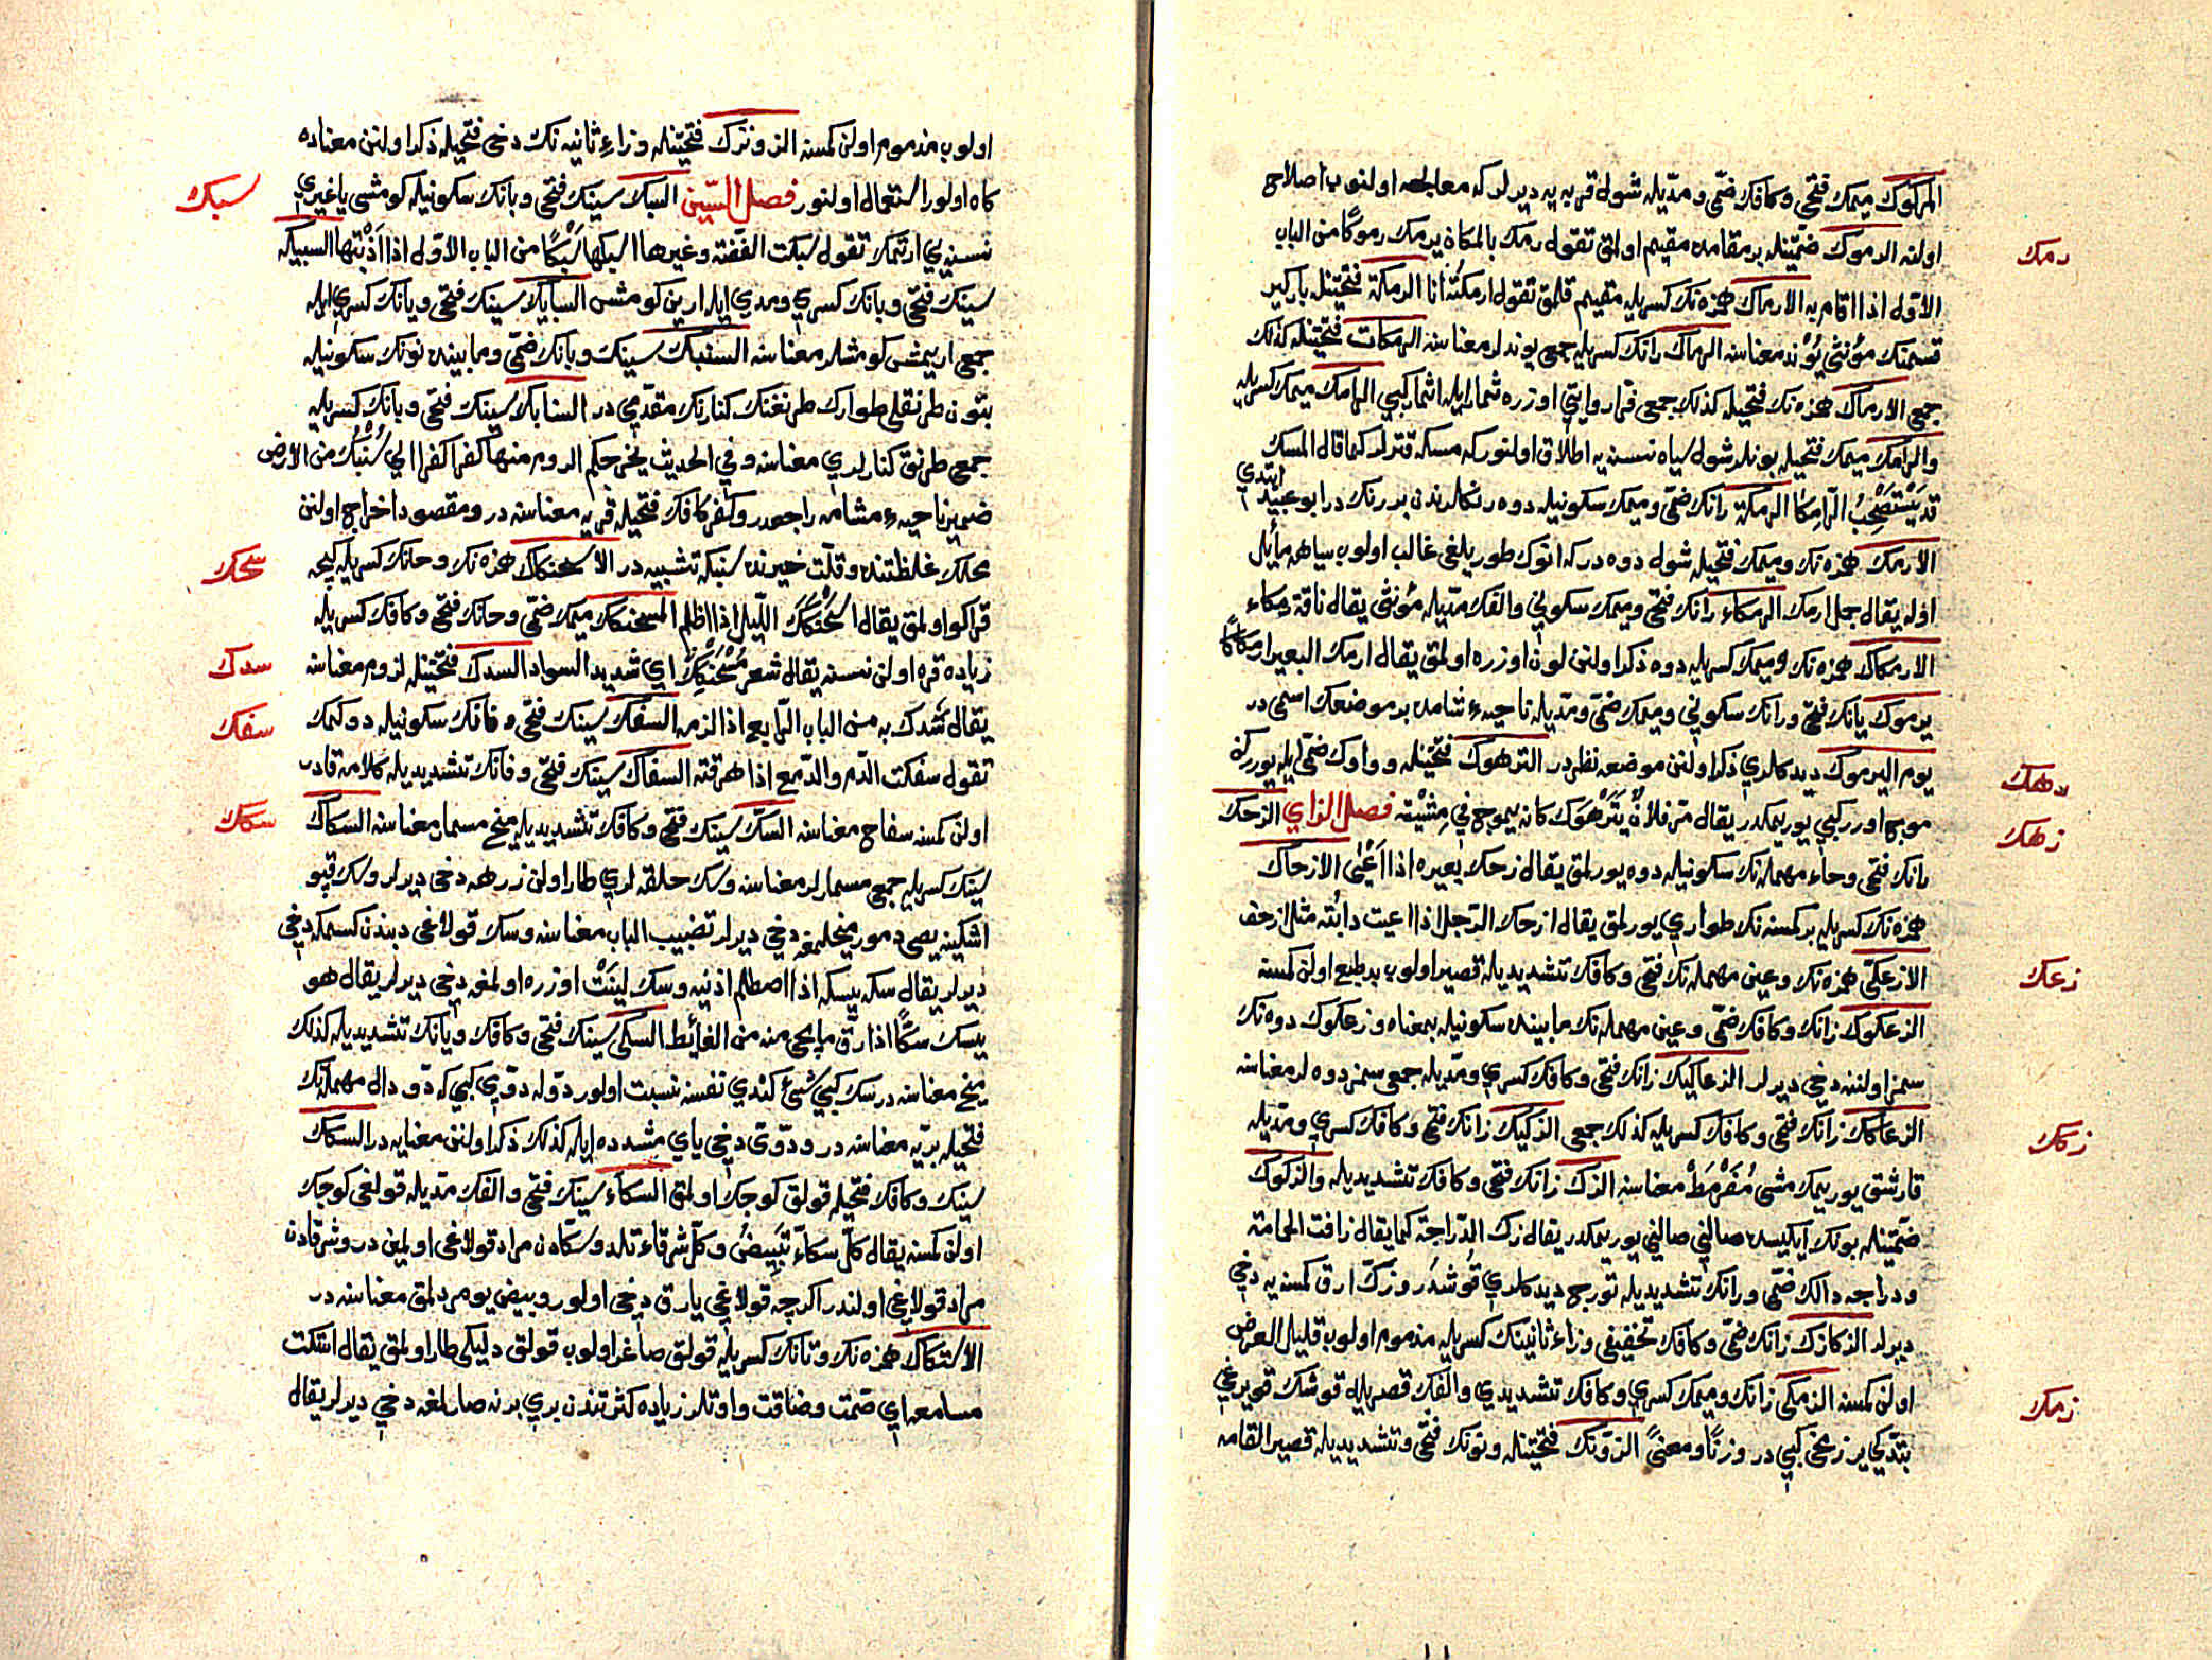 المركوك ميمك فتحى وكافك ضمّى ومدّيله شول قربه يه ديرلر كه معالجه اولنوب اصلاح
اولنه الرموك ضمّتينله بر مقامده مقيم اولمق تقول رمك بالمكان يرمك رموكًا من الباب
رمك
الاوّل اذا اقام به الارماك همزه نك كسريله مقيم قلمق تقول ارمكته انا الرمكة فتحتينله باركير
قسمنك مؤنثى يُوْند معناسنه الرماك رانك كسريله جمعى يوندلر معناسنه الرمكات فتحتينله كذلك
جمعى الارماك همزه نك فتحيله كذلك جمعى فرا روايتى اوزره ثمار ايله اثمار كبى الرامك ميمك كسريله
والرامك ميمك فتحيله بونلر شول سياه نسنه يه اطلاق اولنور كه مسكه قترلر كما قال المسك
قد يَسْتَصْحِبُ الرّامِكَا الرمكة رانك ضمّى وميمك سكونيله دوه رنكلرندن بر رنك در ابو عبيد ايتدى
الارمك همزه نك وميمك فتحيله شول دوه در كه انوك طور يلغى غالب اولوب سياهه مائل
اوله يقال جمل ارمك الرمكاء رانك فتحى وميمك سكونى والفك مدّيله مؤنثى يقال ناقة رمكاء
الارمكاك همزه نك وميمك كسريله دوه ذكر اولنن لون اوزره اولمق يقال ارمك البعير ارمكاكًا
يرموك يانك فتحى ورانك سكونى وميمك ضمّى ومدّيله ناحيهٔ شامده بر موضعك اسمى در
يوم اليرموك ديدكلرى ذكر اولنن موضعه نظر در الترهوك فتحتينله وواوك ضمّى ايله يوررکن
رهك
موجلو اورر كبى يوريمكدر يقال مرّ فلانٌ يَتَرَهْوَك كانه يموج فى مِشْيَته فصل الزاى الزحك
زحك
زانك فتحى وحاء مهمله نك سكونيله دوه يورلمق يقال زحك بعيره اذا اَعْيٰى الازحاك
همزه نك كسريله بر كمسنه نك طوارى يورلمق يقال ازحك الرّجل اذا اعيت دابّته مثل ازحف
الازعكى همزه نك وعين مهمله نك فتحى وكافك تشديديله قصير اولوب بد طبع اولن كمسنه
زعك
الزعكوك زانك وكافك ضمّى وعين مهمله نك مابينده سكونيله بمعناه وزعكوك دوه نك
سمز اولننه دخى ديرلر الزعاكيك زانك فتحى وكافك كسرى ومدّيله جمعى سمز دوه لر معناسنه
الزعاكك زانك فتحى وكافك كسريله كذلك جمعى الزكيك زانك فتحى وكافك كسرى ومدّيله
زكك
قارشق يوريمك مشى مُقَرْمَطْ معناسنه الزك زانك فتحى وكافك تشديديله والزكوك
ضمّتينله بونك ايكيسده صالنى صالنى يوريمكدر يقال زك الدّراجة كما يقال زافت الحمامة
ودراجه دالك ضمّى ورانك تشديديله تورج ديدكلرى قوشدر وزكّ ارق كمسنه يه دخى
ديرلر الزكازك زانك ضمّى وكافك تخفيفى وزاء ثانينك كسريله مذموم اولوب قليل العرض
اولن كمسنه الزمكى زانك وميمك كسرى وكافك تشديدى والفك قصريله قوشك قويرغى
زمك
بتدكى ير زمجى كبى در وزنًا ومعنًى الزونّك فتحتينله ونونك فتحى وتشديديله قصير القامه
اولوب مذموم اولن كمسنه الزونزك فتحتينله وزاء ثانيه نك دخى فتحيله ذكر اولنن معناده
كاه اولور استعمال اولنور فصل السّين السبك سينك فتحى وبانك سكونيله كومشى يا غيرى
سبك
نسنه يى ارتمك تقول سبكت الفضّة وغيرها اسبكها سَبْكًا من الباب الاوّل اذا اَذَبْتها السبيكه
سينك فتحى وبانك كسرى ومدى ايله ارين كومش السبايك سينك فتحى ويانك كسرى ايله
جمعى اريمش كومشلر معناسنه السنبك سينك وبانك ضمّى ومابينده نونك سكونيله
بتون طرنقلى طوارك طرنغنك كنارنك مقدّمى در السنابك سينك فتحى وبانك كسريله
جمعى طرنق كنارلرى معناسنه وفى الحديث يخرجكم الروم منها كفرا كفرا الى سُنْبُك من الارض
ضمير ناحيهٔ شامه راجعدر وكفر كافك فتحيله قريه معناسنه در ومقصود اخراج اولنن
محلك غلظتنده وقلّت خيرنده سنبكه تشبيه در الاسحنكاك همزه نك وحانك كسريله كيجه
سحك
قراكو اولمق يقال اسْحَنْكَكَ اللّيل اذا اظلم المسحنكك ميمك ضمّى وحانك فتحى وكافك كسريله
زياده قره اولن نسنه يقال شعر مُسْحَنْكِكٌ اى شديد السواد السدك فتحتينله لزوم معناسنه
سدك
يقال سَدك به من الباب الرّابع اذا لزمه السفك سينك فتحى وفانك سكونيله دوكمك
سفك
تقول سفكت الدّم والدّمع اذا هرقته السفاك سينك فتحى وفانك تشديديله كلامه قادر
اولن كمسنه سفاح معناسنه السكّ سينك فتحى وكافك تشديديله ميخ مسمار معناسنه السكاك
سكك
سينك كسريله جمعى مسمارلر معناسنه وسك حلقه لرى طار اولن زرهه دخى ديرلر وسك قپو
اشكينه يصى دمور ميخلمغه دخى ديرلر تضبيب الباب معناسنه وسك قولاغى دبندن كسمكه دخى
ديرلر يقال سكه يسكه اذا اصطلم اذنيه وسك لينَتْ اوزره اولمغه دخى ديرلر يقال هو
يسك سكًّا اذا رقّ ما يجى منه من الغائط السكى سينك فتحى وكافك ويانك تشديديله كذلك
ميخ معناسنه در سك كبى شئ كندى نفسنه نسبت اولور دوّله دوّى كبى كه دوّ دال مهمله نك
فتحيله بريّه معناسنه در ودوّى دخى ياى مشدده ايله كذلك ذكر اولنن معنايه در السكك
سينك وكافك فتحيله قولق كوجك اولمق السكاء سينك فتحى والفك مدّيله قولغى كوجك
اولن كمسنه يقال كلّ سكاء تَبِيضُ وكلّ شرقاء تلد وسكّادن مراد قولاغى اولمين در وشرقادن
مراد قولاغى اولندر اكرچه قولاغى يارق دخى اولور وبيض يومردلمق معناسنه در
الاستكاك همزه نك وتانك كسريله قولق صاغر اولوب قولق دليكى طار اولمق يقال استكت
مسامعه اى صمّت وضاقت واوتلر زياده كثرتندن برى برنه صارلمغه دخى ديرلر يقال